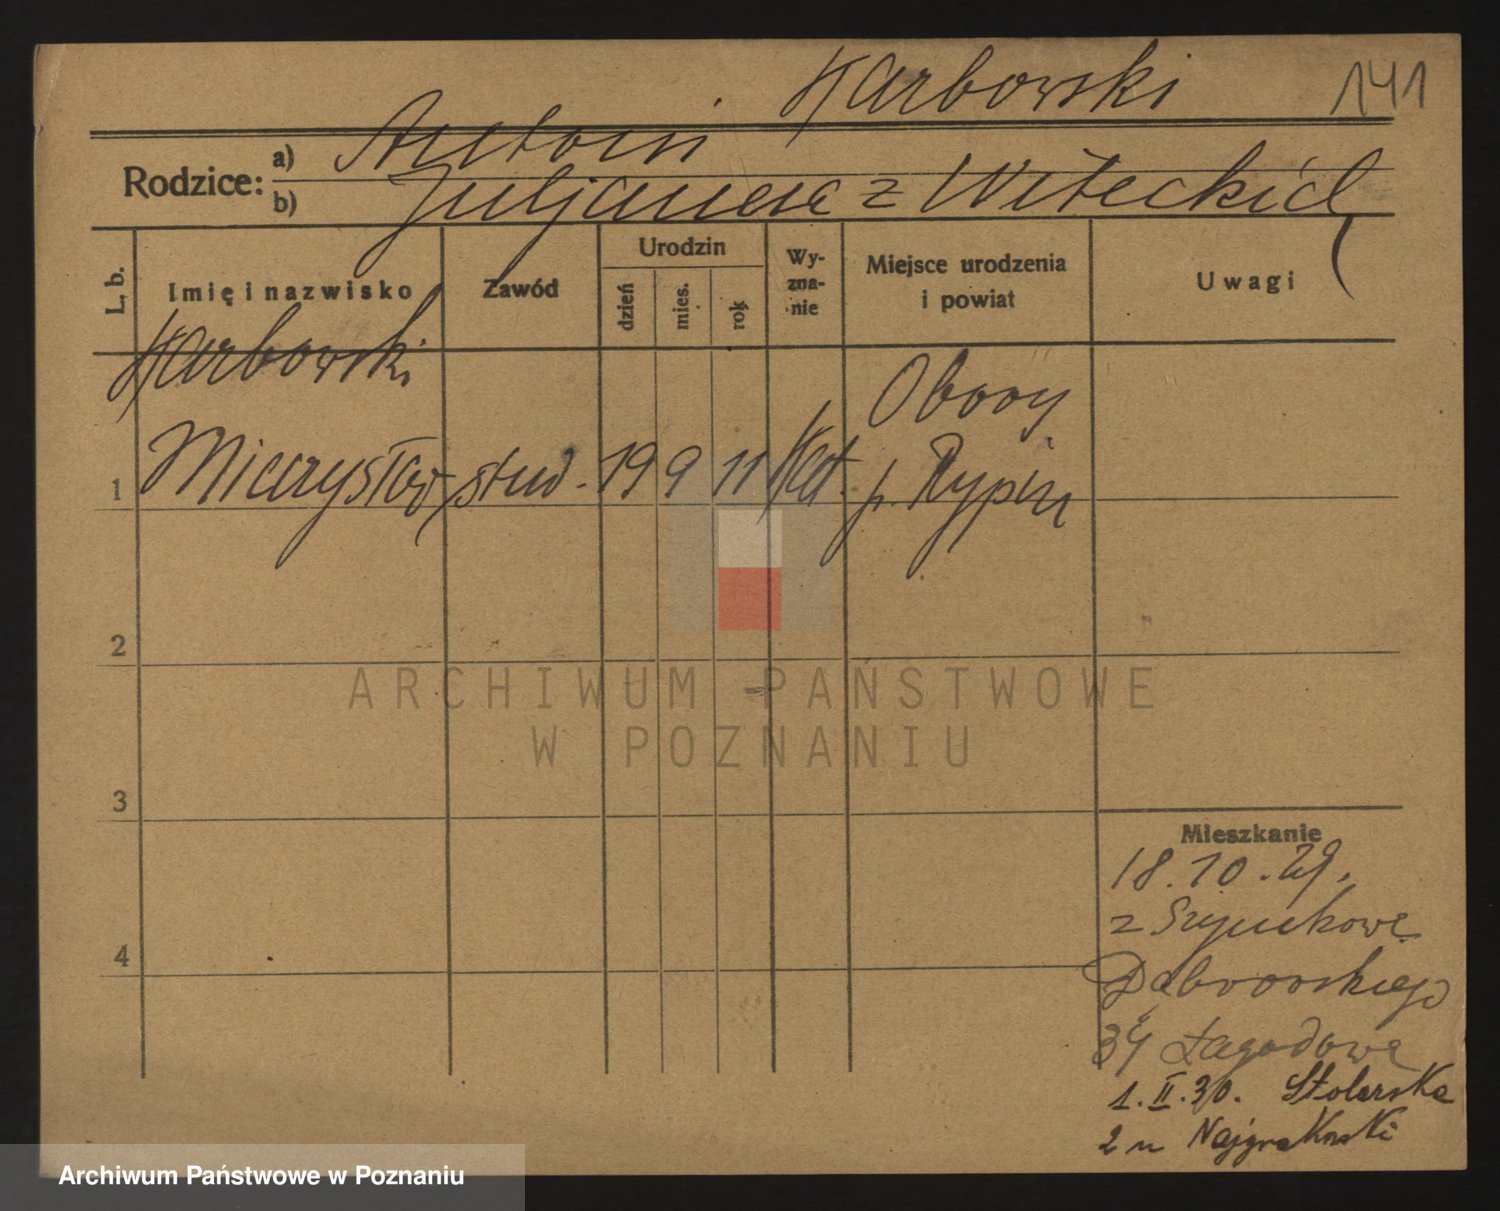 Karbowski 141
Rodzice: a) Antoni
b) Juljanna z Witeckich
L. b. Imię i nazwisko Zawód Urodzin dzień mies. rok Wy-zna-nie Miejsce urodzenia i powiat Uwagi
Karbowski
Obory
1 Mieczysław stud. 19 9 11 kat. p. Rypin
2
ARCHIWUM PAŃSTWOWE
W POZNANIU
3
Mieszkanie
18.10.29.
z
4
Dąbrowskiego
Łagodowa
1.II.30. Stolarska
2 u
Archiwum Państwowe w Poznaniu